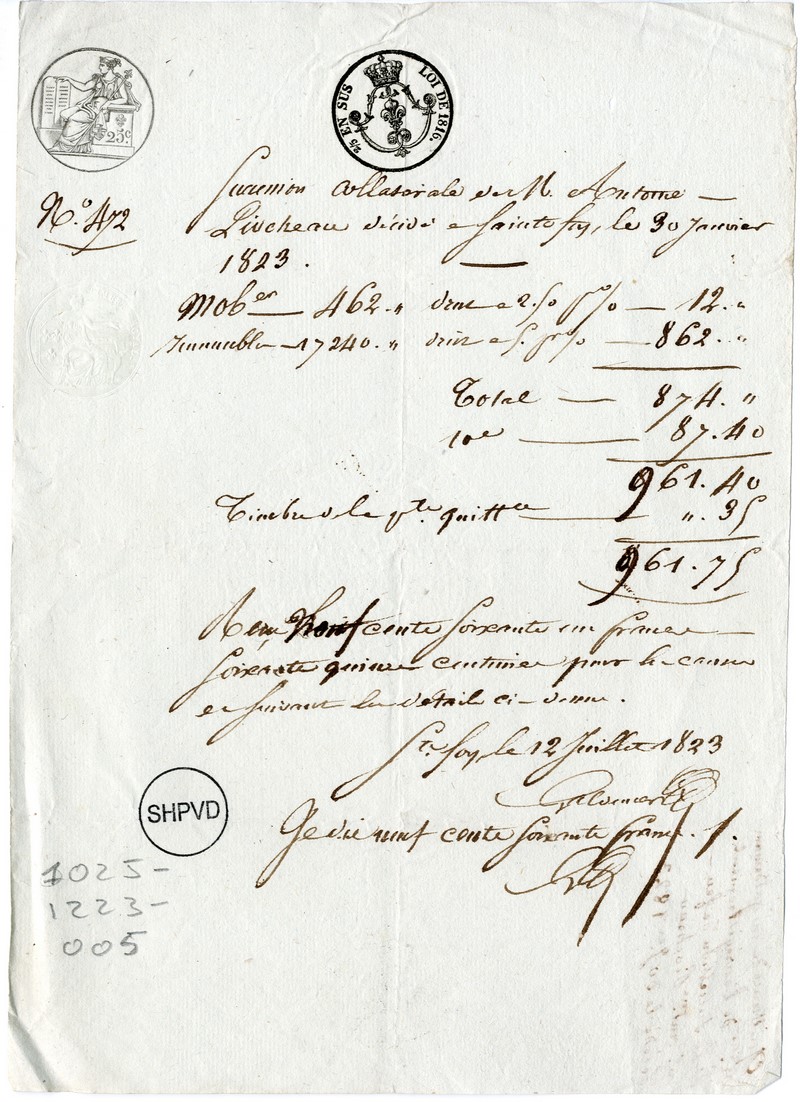 25c.
2/5 EN SUS LOI DE 1816.
N.° 472
Succession Collaterale de M. Antoine —
décédé a Sainte foy, le 30 Janvier
1823. —
Mober — 462. „ droit a 2.50 pr % — 12. „
Immeubles — 17240. „ droit a 5. pr % — 862. „
Total — 874. „
10e — 87.40
961.40
Timbre de la pte quittce — „. 35
961.75
Recu Neuf cents soixante un francs —
soixante quinze centimes pour les causes
et suivant le détail ci-dessus.
Ste foy, le 12 Juillet 1823
Je dis neuf cents soixante francs. 1.
SHPVD
1025-
1223-
005